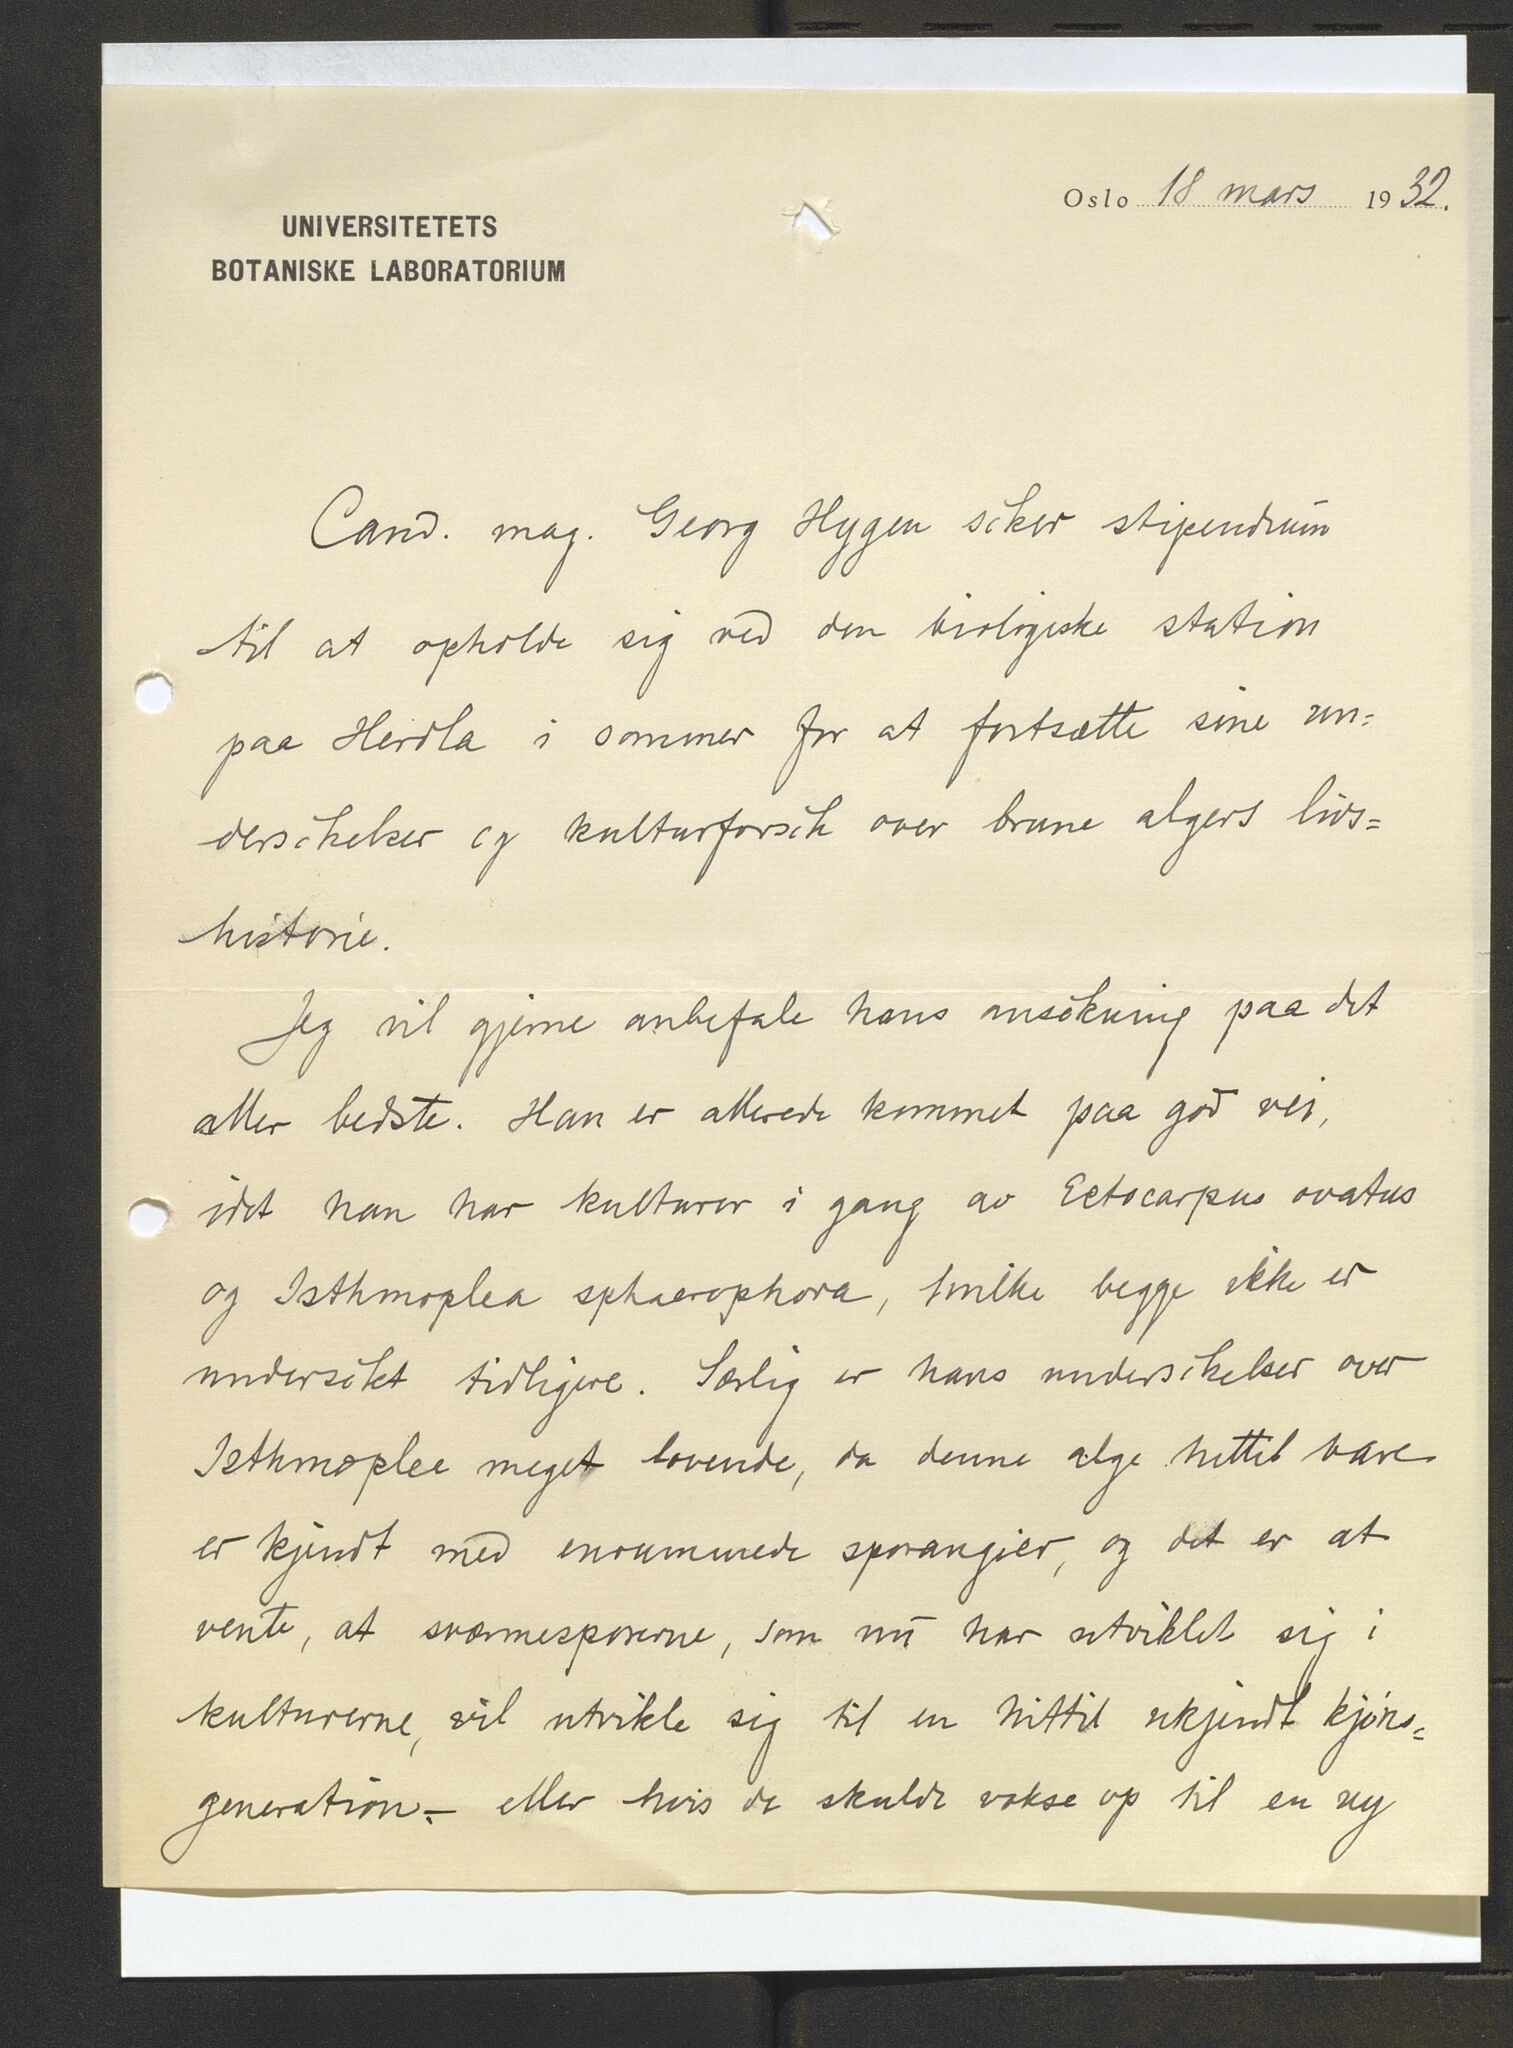 Oslo 18 mars 1932.
UNIVERSITETETS
BOTANISKE LABORATORIUM
Cand. mag. Georg Hygen søker stipendium
til at opholde sig ved den biologiske station
paa Herdla i sommer for at fortsætte sine un=
dersøkelser og kulturforsøk over brune algers livs=
historie.
Jeg vil gjerne anbefale hans ansøkning paa det
aller bedste. Han er allerede kommet paa god vei,
idet han har kulturer i gang av Ectocarpus ovatus
og Isthmoplea sphaerophora, hvilke begge ikke er
undersøkt tidligere. Særlig er hans undersøkelser over
Isthmoplea meget lovende, da denne alge hittil bare
er kjendt med enrummede sporangier, og det er at
vente, at sværmesporerne, som nu har utviklet sig i
kulturerne, vil utvikle sig til en hittil ukjendt kjøns=
generation. – eller hvis de skulde vokse op til en ny